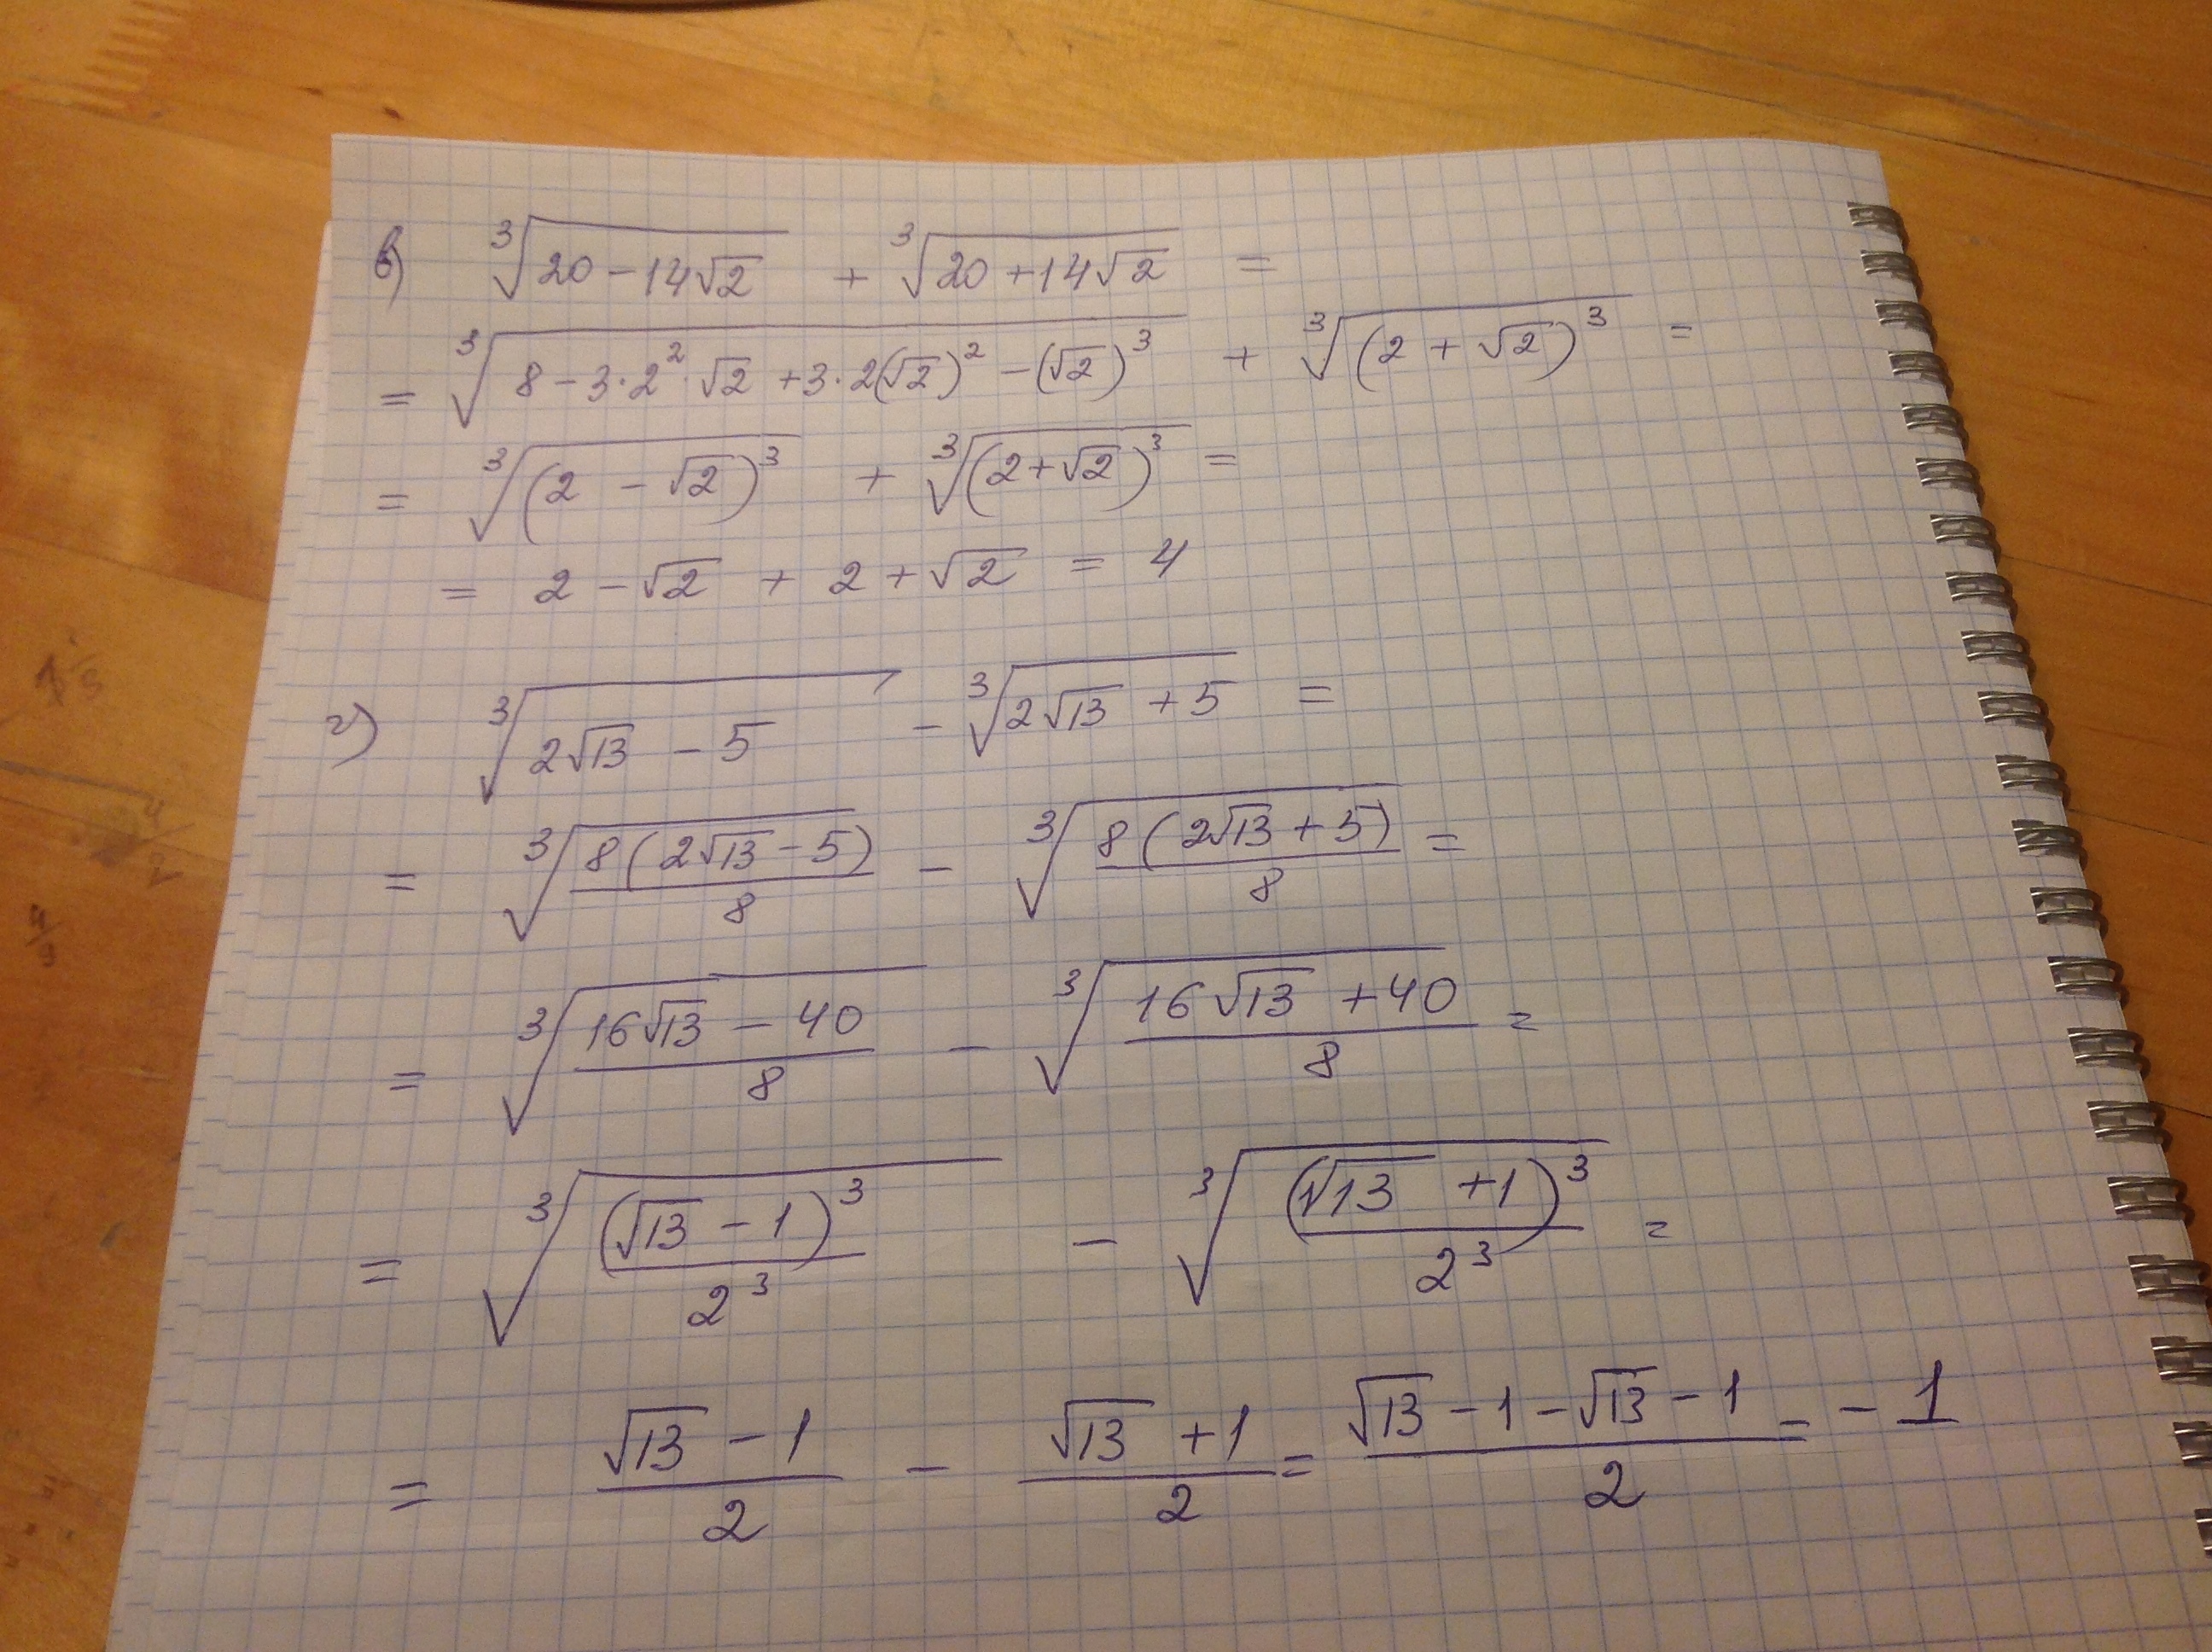 в) ∛(20 − 14√2) + ∛(20 + 14√2) =
= ∛(8 − 3·2²·√2 + 3·2(√2)² − (√2)³) + ∛((2 + √2)³) =
= ∛((2 − √2)³) + ∛((2 + √2)³) =
= 2 − √2 + 2 + √2 = 4
г) ∛(2√13 − 5) − ∛(2√13 + 5) =
= ∛(8(2√13 − 5)/8) − ∛(8(2√13 + 5)/8) =
= ∛((16√13 − 40)/8) − ∛((16√13 + 40)/8) =
= ∛((√13 − 1)³/2³) − ∛((√13 + 1)³/2³) =
= (√13 − 1)/2 − (√13 + 1)/2 = (√13 − 1 − √13 − 1)/2 = − 1